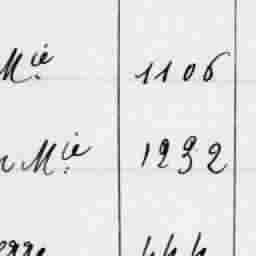 Mie 1106
Mie 1292
444